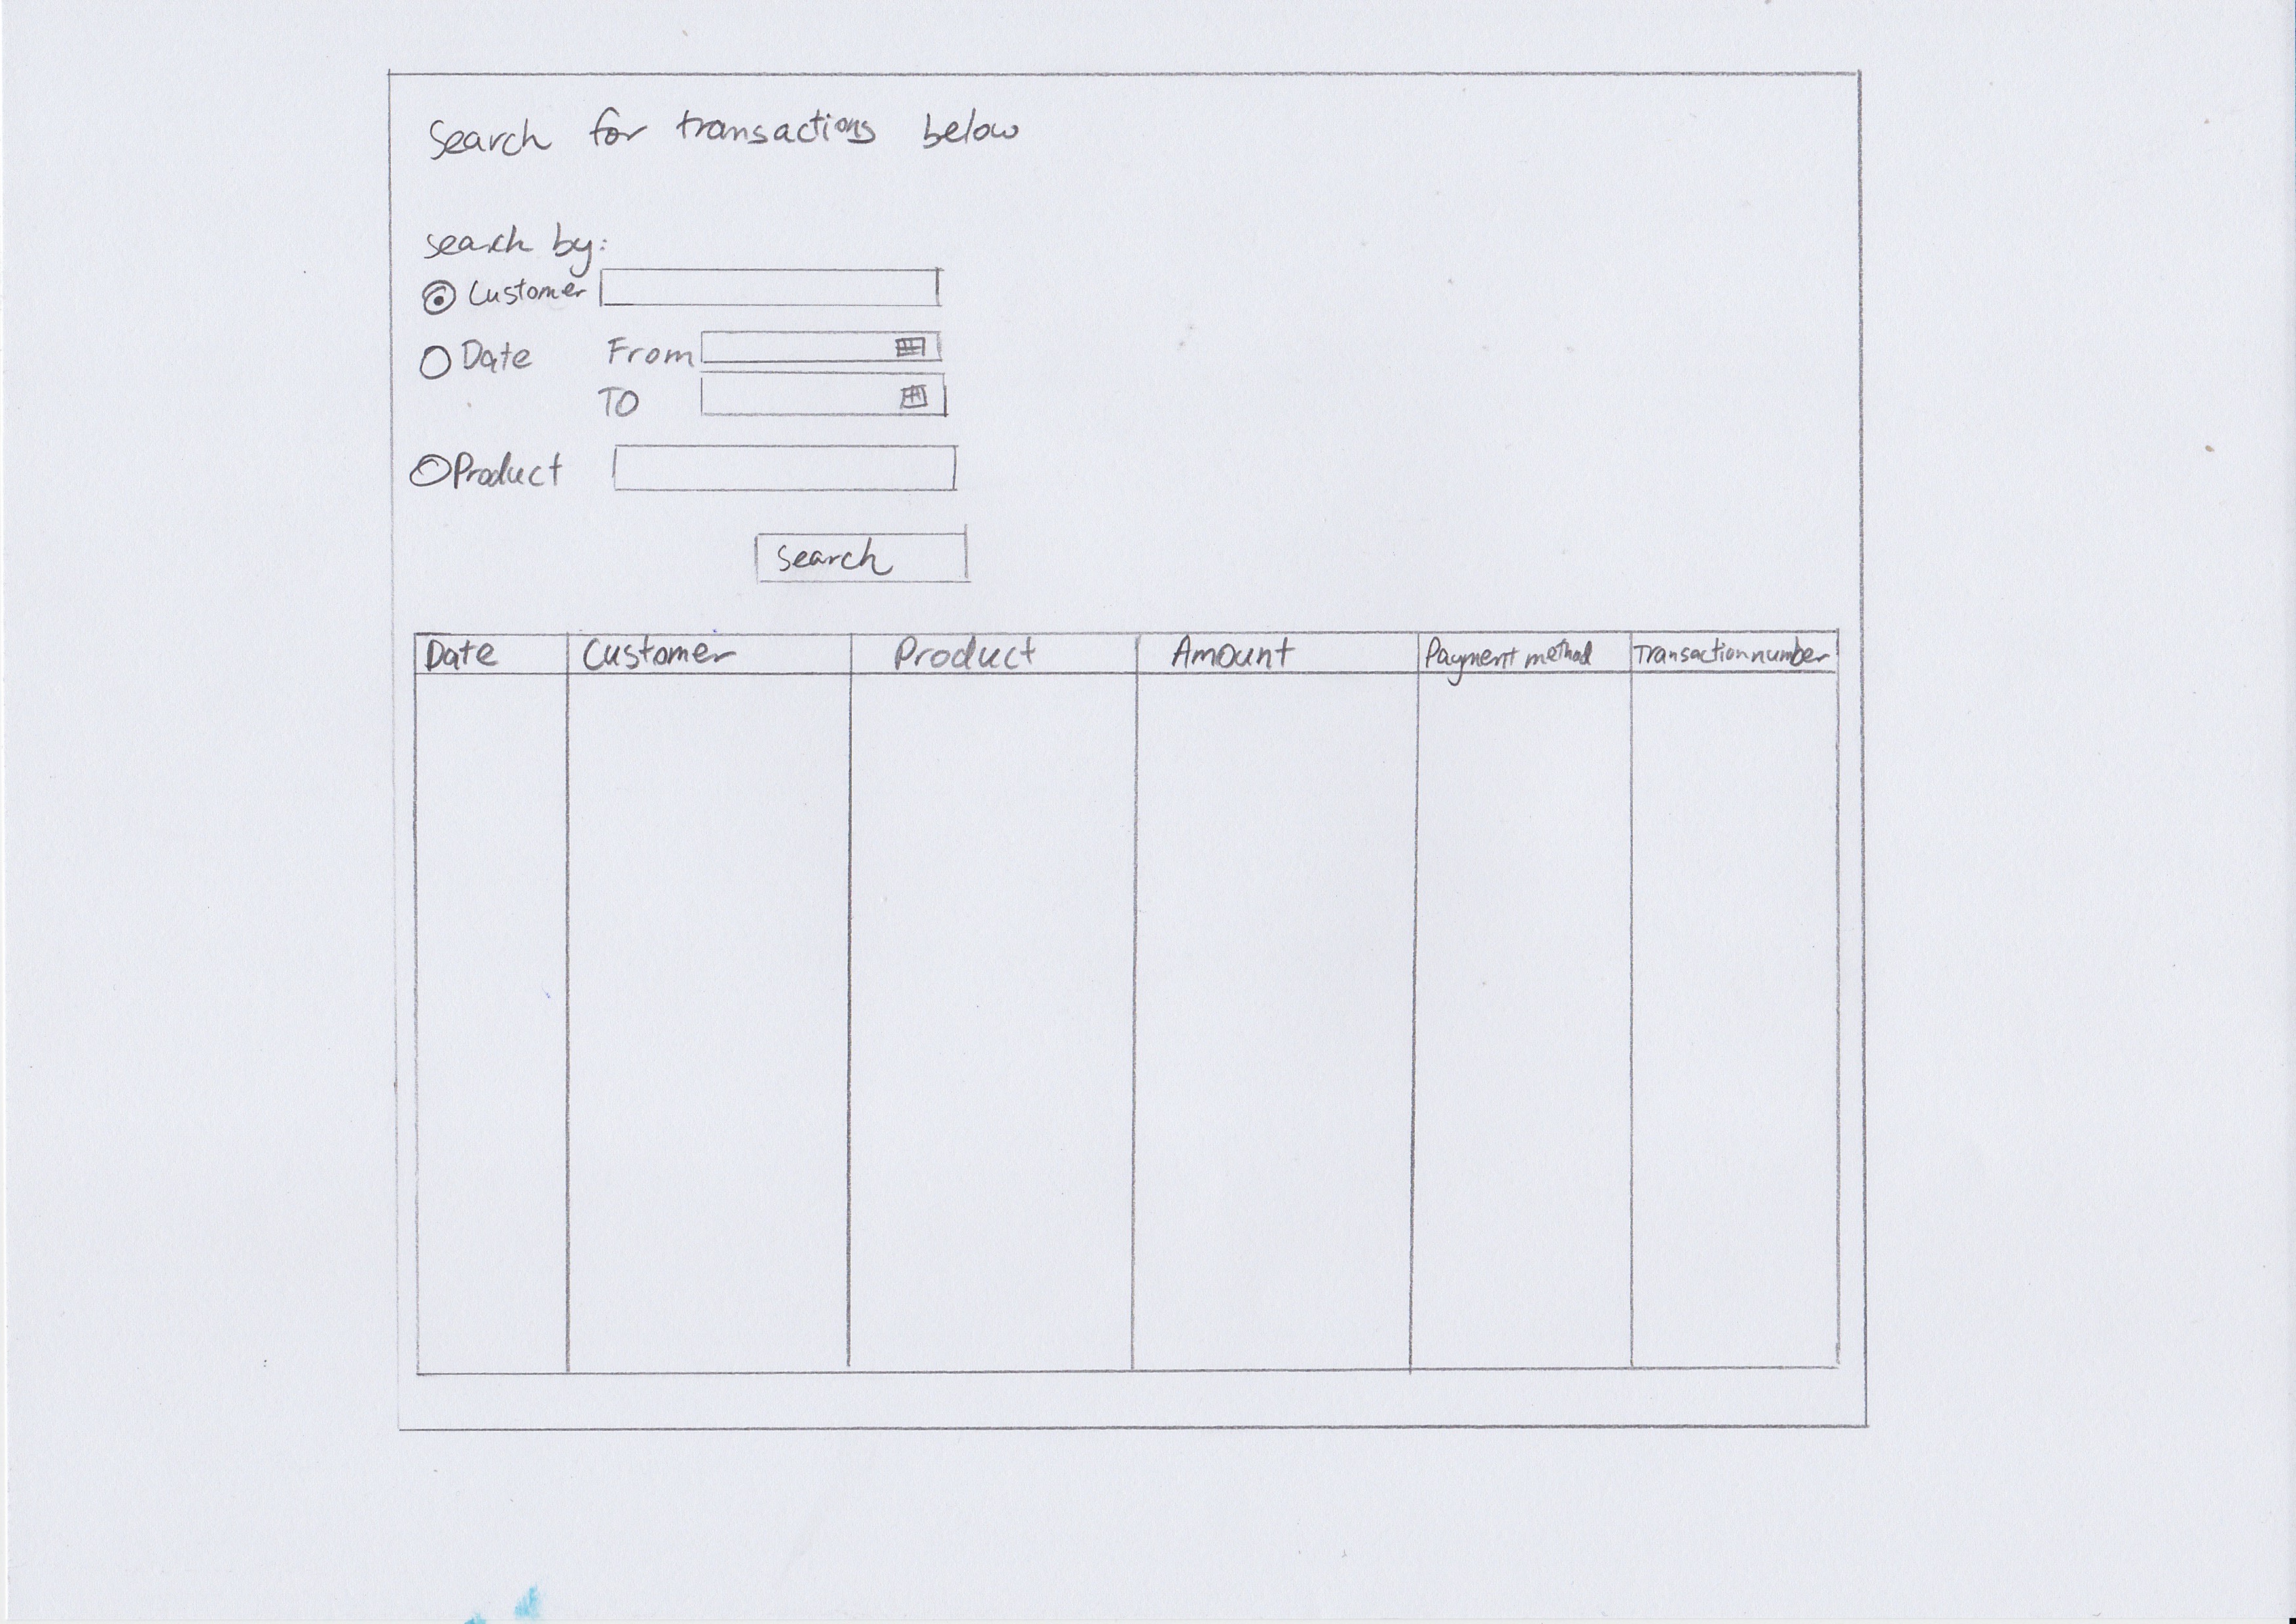 Search for transactions below
search by:
Customer
Date From
TO
Product
search
Date Customer Product Amount Payment method Transaction number